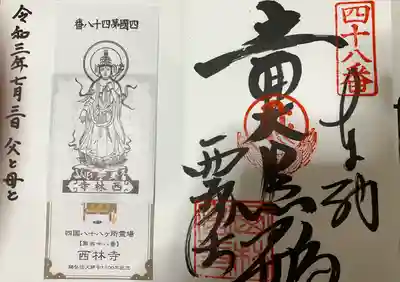 四十八番
奉納
西林寺
四國第四十八番
西林寺
四國八十八ヶ所霊場
【第四十八番】
西林寺
令和三年七月三日 父と母と